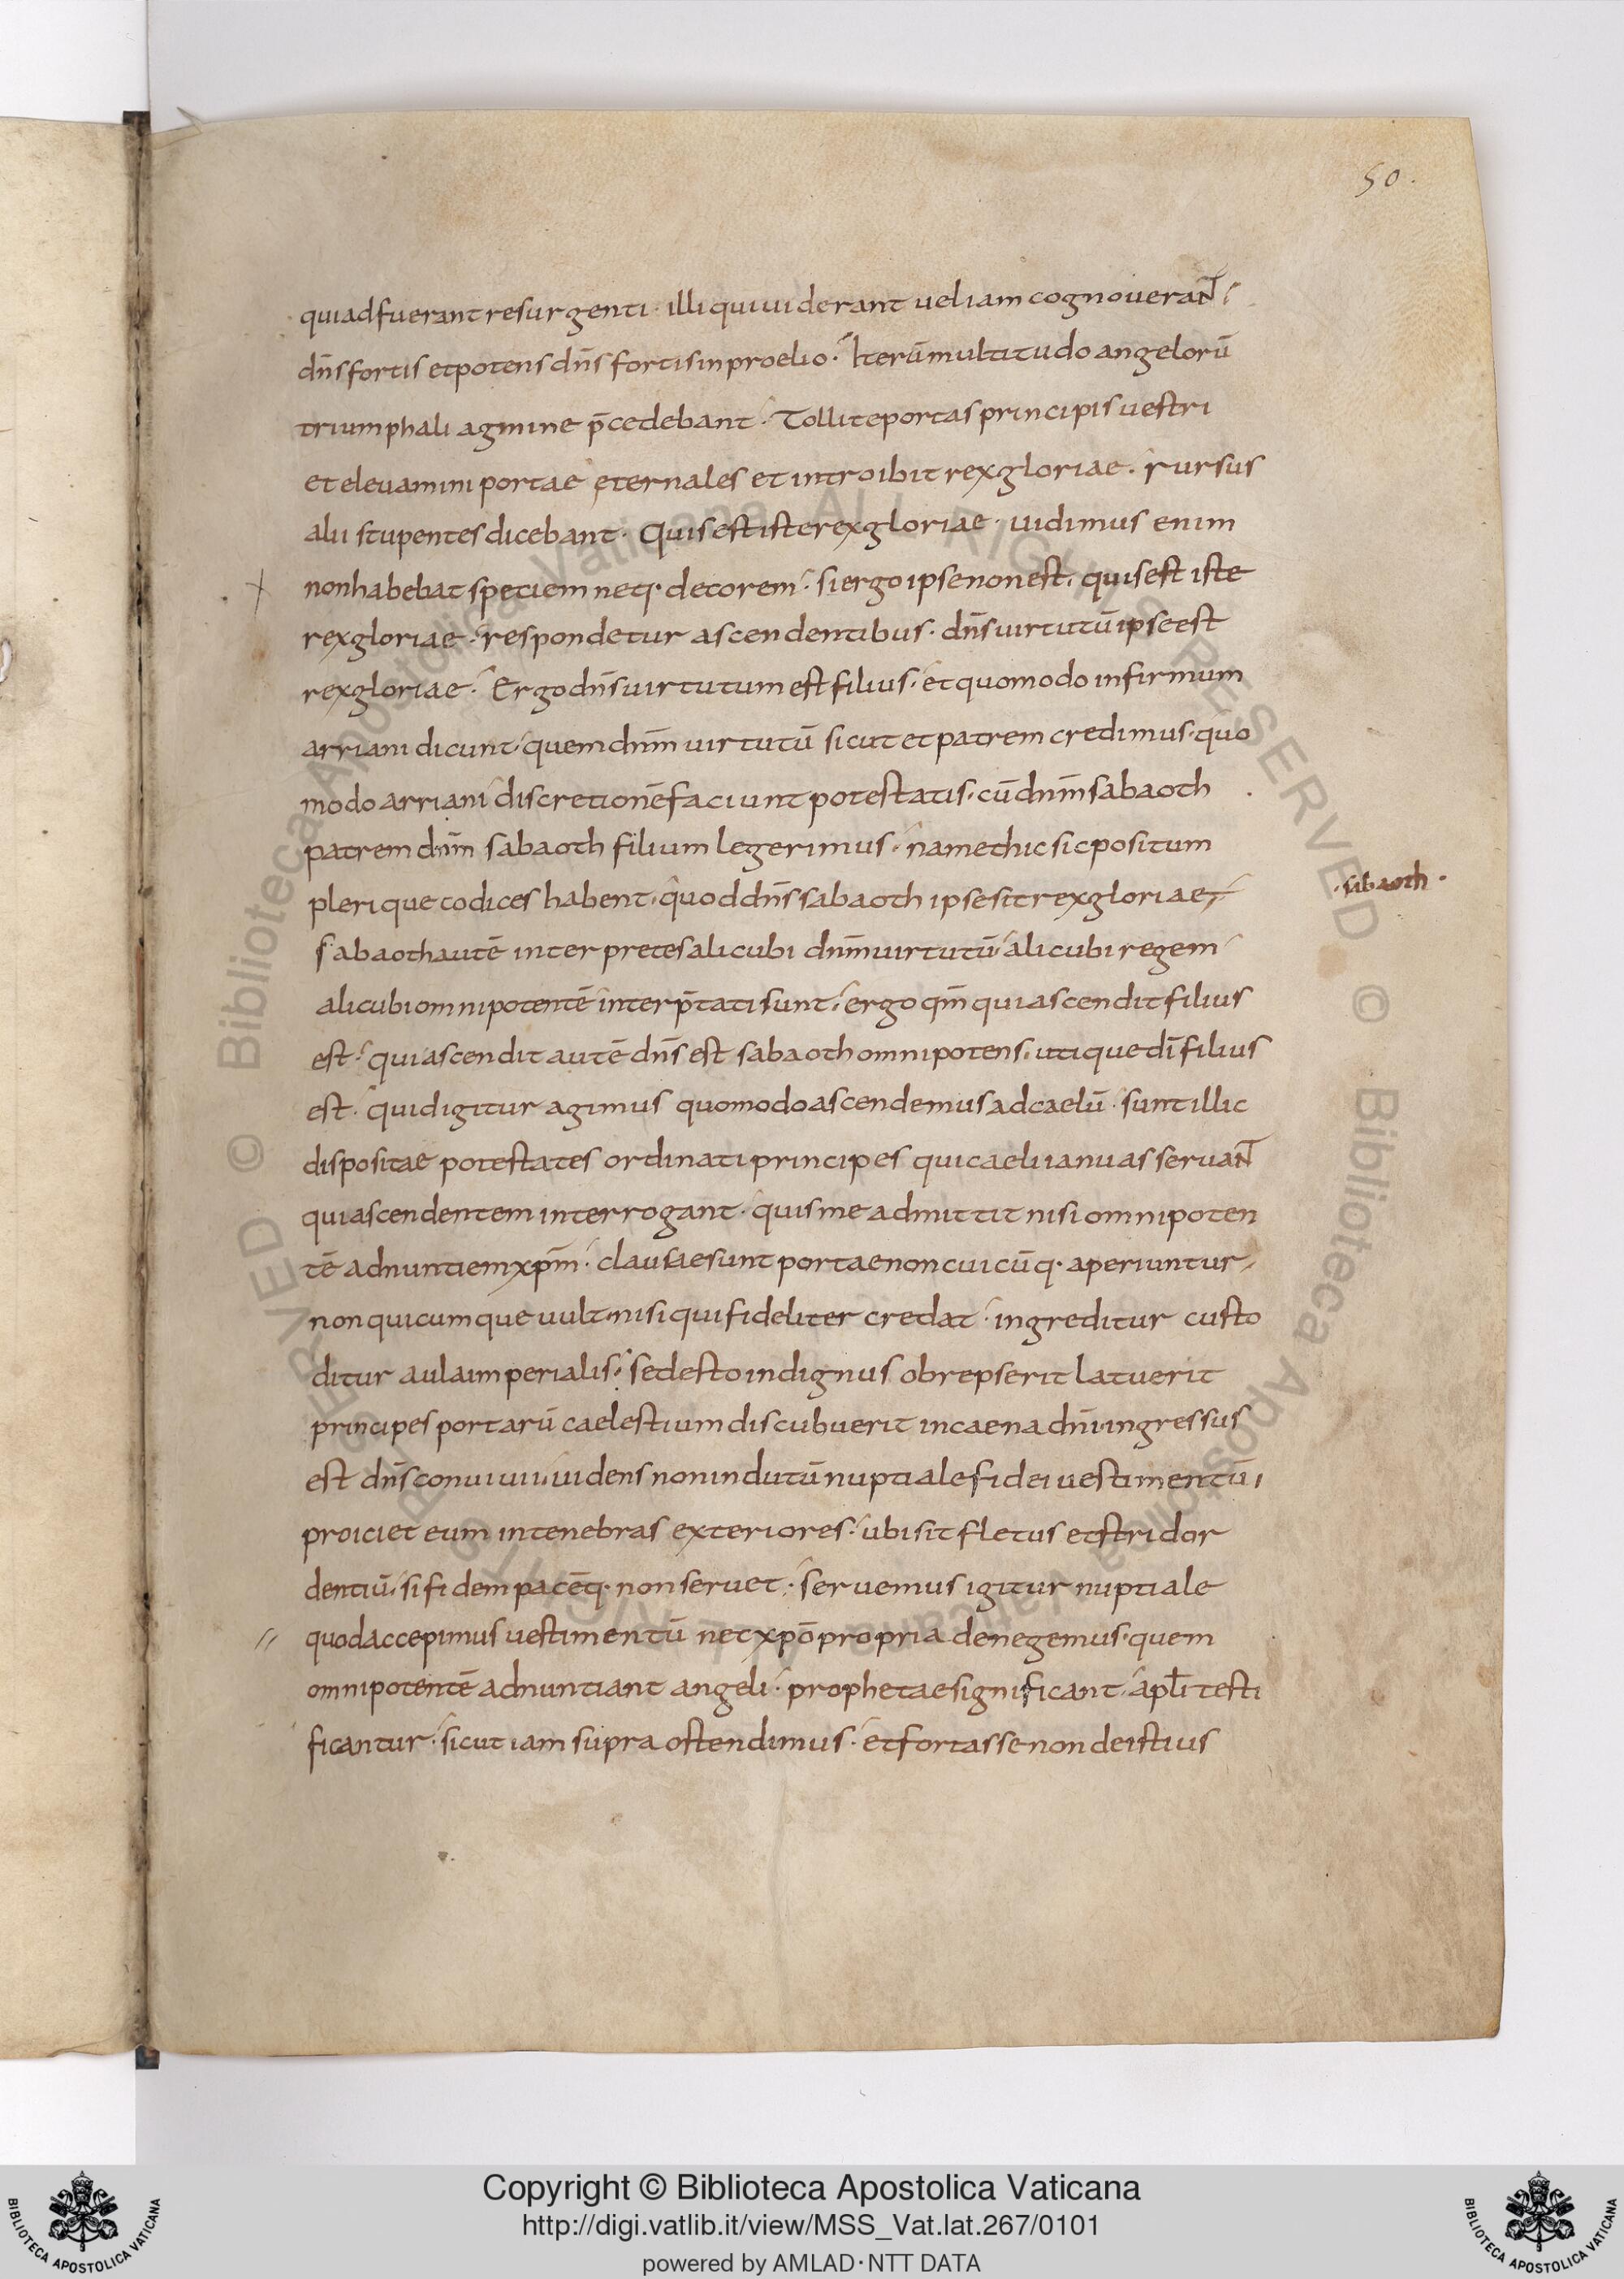 50.
qui adfuerant resurgenti · illi qui uiderant uel iam cognouerant
dn̄s fortis et potens dn̄s fortis in proelio · Iterū multitudo angelorū
triumphali agmine p̄cedebant · Tollite portas principis uestri
et eleuamini portae ęternales et introibit rex gloriae · rursus
alii stupentes dicebant · Quis est iste rex gloriae · uidimus enim
non habebat speciem neq· decorem · si ergo ipse non est, quis est iste
rex gloriae · respondetur ascendentibus · dn̄s uirtutū ipse est
rex gloriae · Ergo dn̄s uirtutum est filius · et quomodo infirmum
arriani dicunt · quem dn̄m uirtutū sicut et patrem credimus · quo
modo arriani discretionē faciunt potestatis · cū dn̄m sabaoth
patrem dn̄m sabaoth filium legerimus · nam et hic sic positum
plerique codices habent · quod dn̄s sabaoth ipse sit rex gloriae
·sabaoth·
sabaoth autē interpretes alicubi dn̄m uirtutū alicubi regem
alicubi omnipotentē interp̄tati sunt · ergo qm̄ qui ascendit filius
est · qui ascendit autē dn̄s est sabaoth omnipotens · utique dī filius
est · quid igitur agimus quomodo ascendemus ad caelū · sunt illic
dispositae potestates ordinati principes qui caeli ianuas seruant
qui ascendentem interrogant · quis me admittit nisi omnipoten
tē adnuntiem xp̄m · clausae sunt portae non cuicūq· aperiuntur
non quicumque uult · nisi qui fideliter credat · ingreditur custo
ditur aula imperialis · sed esto indignus obrepserit latuerit
principes portarū caelestium discubuerit in caena dn̄i · ingressus
est dn̄s conuiuii · uidens non indutū nuptiale fidei uestimentū ·
proiciet eum in tenebras exteriores · ubi sit fletus et stridor
dentiū · si fidem pacēq· non seruet · seruemus igitur nuptiale
quod accepimus uestimentū nec xp̄o propria denegemus · quem
omnipotentē adnuntiant angeli · prophetae significant · apl̄i testi
ficantur · sicut iam supra ostendimus · et fortasse non de istius
Copyright © Biblioteca Apostolica Vaticana
http://digi.vatlib.it/view/MSS_Vat.lat.267/0101
powered by AMLAD·NTT DATA
BIBLIOTECA APOSTOLICA VATICANA
BIBLIOTECA APOSTOLICA VATICANA